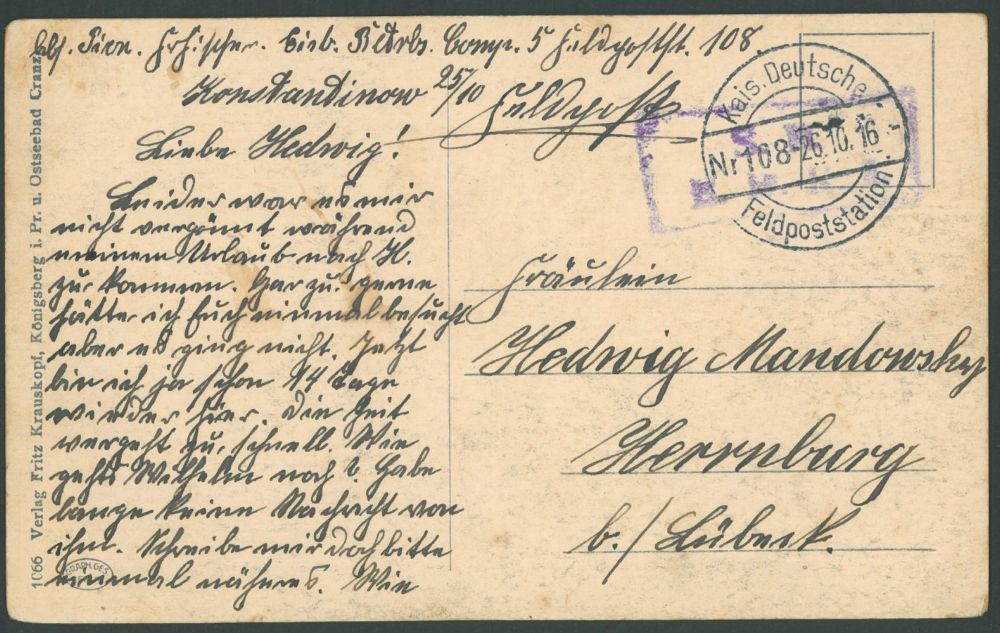 Abs. Pion. Eisenb. Betrbs. Comp. 5 Feldpostst. 108.
Konstantinow 25/10
Feldpost
Kais. Deutsche
Nr 108 - 26.10.16 -
Feldpoststation.
Liebe Hedwig!
Leider war es mir
nicht vergönnt während
meinem Urlaub nach H.
zu kommen. Gar zu gerne
hätte ich Euch einmal besucht
aber es ging nicht. Jetzt
bin ich ja schon 14 Tage
wieder hier. Die Zeit
vergeht zu schnell. Wie
gehts Wilhelm noch? Habe
lange keine Nachricht von
ihm. Schreibe mir doch bitte
einmal näheres. Wie
Fräulein
Hedwig Mandowsky
Herrnburg
b./ Lübeck.
1066 Verlag Fritz Krauskopf, Königsberg i. Pr. u. Ostseebad Cranz
GRAPH. GES.